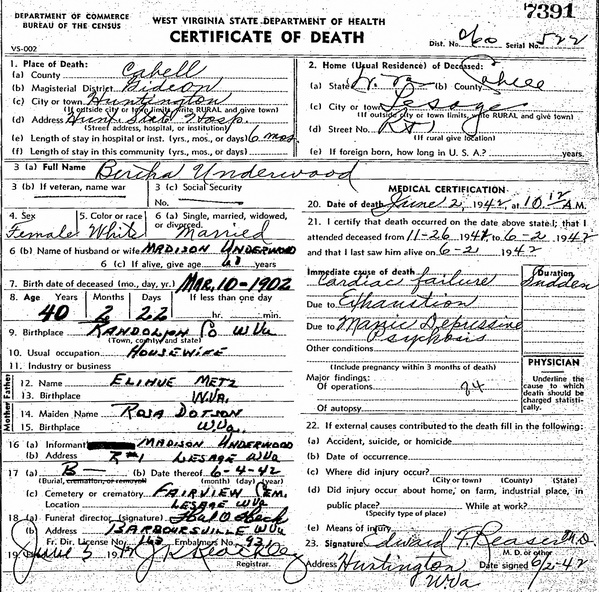 DEPARTMENT OF COMMERCE
BUREAU OF THE CENSUS
VS-002
WEST VIRGINIA STATE DEPARTMENT OF HEALTH
CERTIFICATE OF DEATH
7391
Dist. No. 060 Serial No. 522
1. Place of Death:
(a) County Cabell
(b) Magisterial District Gideon
(c) City or town Huntington
(If outside city or town limits, write RURAL and give town)
(d) Address Hunt. State Hosp.
(Street address, hospital, or institution)
(e) Length of stay in hospital or inst. (yrs., mos., or days) 6 mos.
(f) Length of stay in this community (yrs., mos., or days)
2. Home (Usual Residence) of Deceased:
(a) State W. Va (b) County Cabell
(c) City or town Lesage
(If outside city or town limits, write RURAL and give town)
(d) Street No. Rt 1
(If rural give location)
(e) If foreign born, how long in U. S. A.? years.
3 (a) Full Name Bertha Underwood
3 (b) If veteran, name war
3 (c) Social Security
No.
4. Sex Female
5. Color or race White
6 (a) Single, married, widowed, or divorced. Married
6 (b) Name of husband or wife MADISON UNDERWOOD
6 (c) If alive, give age 61 years
7. Birth date of deceased (mo., day, yr.) MAR. 10-1902
8. Age Years Months Days If less than one day
40 2 22 hr. min.
9. Birthplace RANDOLPH CO W.VA
(Town, county and state)
10. Usual occupation HOUSEWIFE
11. Industry or business
Father
12. Name ELIHUE METZ
13. Birthplace W.VA.
Mother
14. Maiden Name ROSA DOTSON
15. Birthplace W.VA.
16 (a) Informant MADISON UNDERWOOD
(b) Address R#1 LESAGE W.VA
17 (a) B— (b) Date thereof 6-4-42
(Burial, cremation, or removal) (month) (day) (year)
(c) Cemetery or crematory FAIRVIEW CEM.
Location LESAGE W.VA
18 (a) Funeral director (signature)
(b) Address BARBOURSVILLE W.VA
Fr. Dir. License No. 163 Embalmers No. 931
19 June 5 1942
Registrar.
MEDICAL CERTIFICATION
20. Date of death June 2, 1942, at 10:12 A.M.
21. I certify that death occurred on the date above stated; that I
attended deceased from 11-26 1941, to 6-2 1942
and that I last saw him alive on 6-2 1942
Immediate cause of death Duration
Cardiac failure Sudden
Due to Exhaustion
Due to Manic Depressive
Psychosis
Other conditions
(Include pregnancy within 3 months of death)
Major findings:
Of operations 84
Of autopsy
PHYSICIAN
Underline the cause to which death should be charged statistically.
22. If external causes contributed to the death fill in the following:
(a) Accident, suicide, or homicide
(b) Date of occurrence
(c) Where did injury occur?
(City or town) (County) (State)
(d) Did injury occur about home, on farm, industrial place, in
public place? While at work?
(Specify type of place)
(e) Means of injury
23. Signature Edward F. Reaser M.D.
M. D. or other
Address Huntington Date signed 6/2-42
W.Va